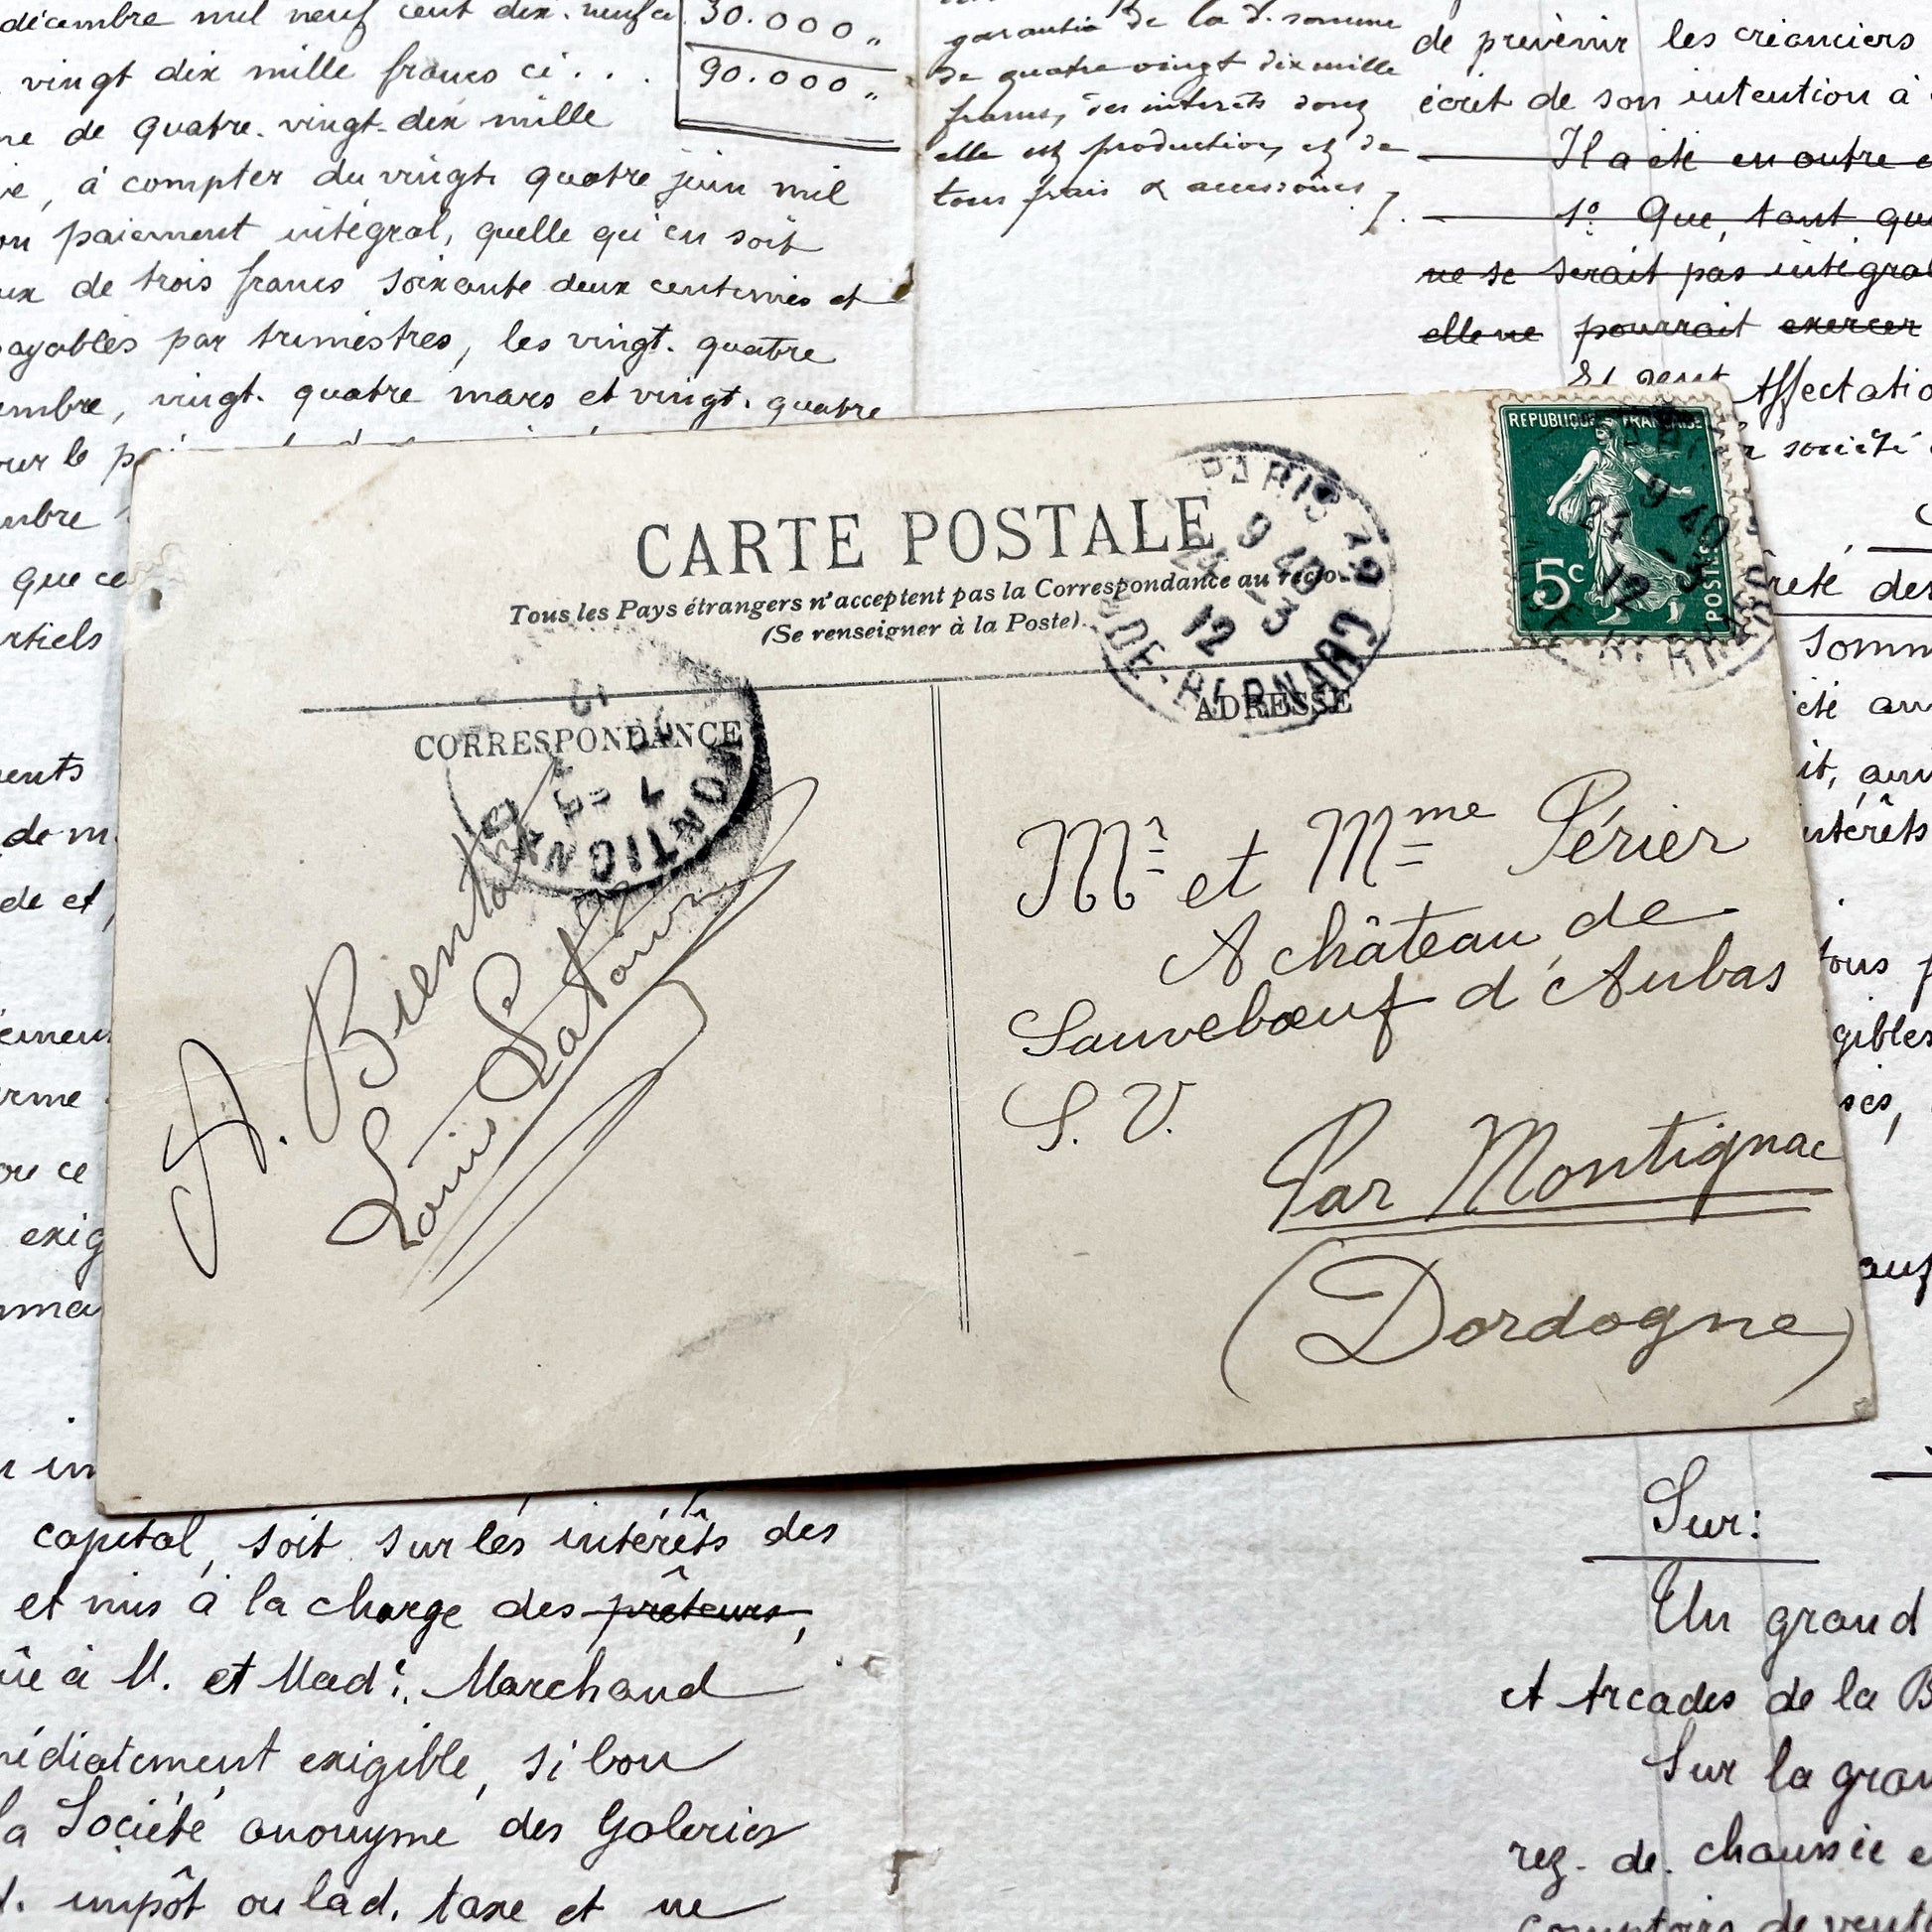 décembre mil neuf cent dix. neuf ci
30.000 „
vingt dix mille francs ci . . .
90.000 „
de quatre. vingt. dix mille
, à compter du vingt. quatre juin mil
paiement intégral, quelle qu'en soit
de trois francs soixante deux centimes et
payables par trimestres, les vingt. quatre
vingt. quatre mars et vingt. quatre
garantie de la d. somme
de quatre vingt dix mille
francs, des intérêts dont
elle est production, et de
tous frais & accessoires
de prévenir les créanciers
écrit de son intention à
Il a été en outre
1º. Que, tant que
ne se serait pas intégral
elle ne pourrait exercer
Affectatio
société
reté des
somm
que ce
CARTE POSTALE
Tous les Pays étrangers n'acceptent pas la Correspondance au recto
(Se renseigner à la Poste).
PARIS 79
9 40
24 -3
12
R. CL. BERNARD
REPUBLIQUE FRANÇAISE
5c
POSTES
9 40
24 -3
12
CORRESPONDANCE
MONTIGNAC
ADRESSE
A. Bientôt
Louis Latour
Mr et Mme Périer
A château de
Sauvebœuf d'Aubas
S. V.
Par Montignac
(Dordogne)
capital, soit sur les intérêts des
et mis à la charge des prêteurs,
à M. et Made. Marchand
médiatement exigible, si bon
la Société anonyme des Galeries
d. impôt ou lad. taxe et ne
Sur:
Un grand
et Arcades de la B
Sur la gran
rez. de. chaussée e
comptoirs de vent